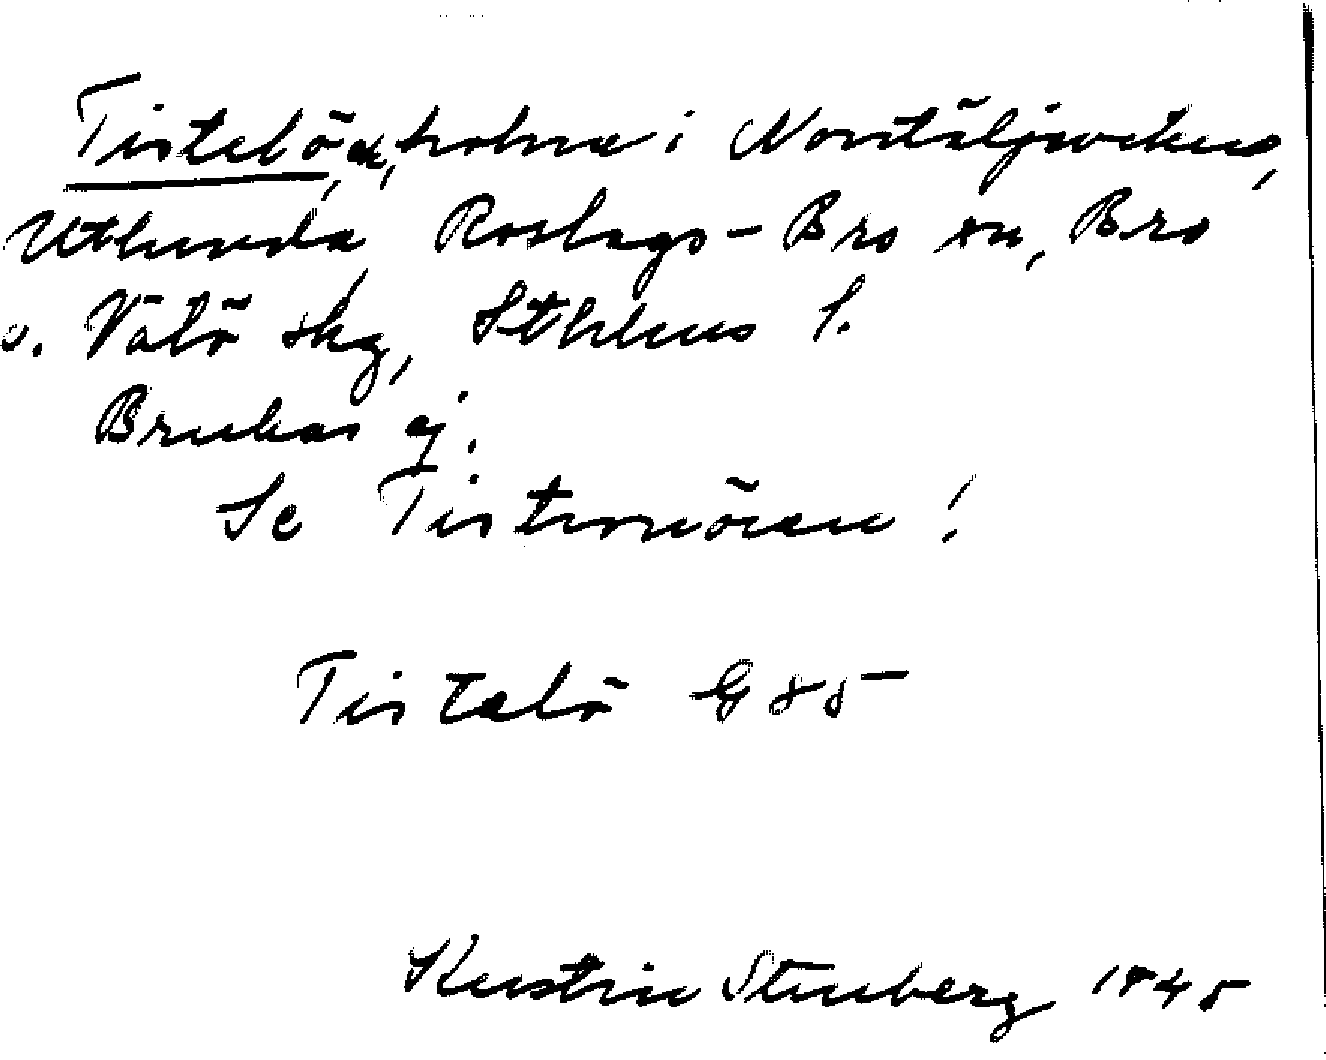 Tistelö, ek, holme i Norrtäljeviken,
Utlunda, Roslags-Bro sn, Bro
o. Vätö skg, Sthlms l.
Brukas ej.
Se Tistronören!
Tistelö G 85
Kerstin Stenberg 1945